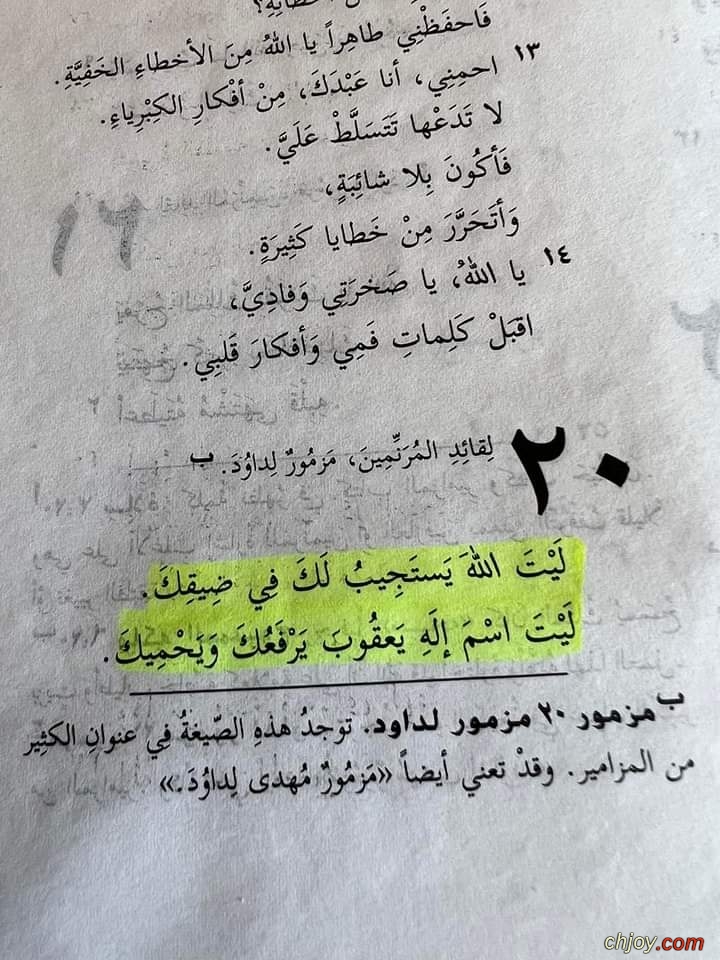 فَاحفَظْنِي طاهِراً يا اللهُ مِنَ الأخطاءِ الخَفِيَّةِ.
١٣ احمِنِي، أنا عَبْدَكَ، مِنْ أفْكارِ الكِبْرِياءِ.
لا تَدَعْها تَتَسَلَّطْ عَلَيَّ.
فَأكُونَ بِلا شائِبَةٍ،
وَأتَحَرَّرَ مِنْ خَطايا كَثِيرَةٍ.
١٤ يا اللهُ، يا صَخرَتِي وَفادِيَّ،
اقبَلْ كَلِماتِ فَمِي وَأفكارَ قَلبِي.
٢٠ لِقائِدِ المُرَنِّمِينَ، مَزمُورٌ لِداوُدَ. ب
لَيْتَ اللهَ يَستَجِيبُ لَكَ فِي ضِيقِكَ.
لَيْتَ اسْمَ إلَهِ يَعقُوبَ يَرْفَعُكَ وَيَحْمِيكَ.
ب مزمور ٢٠ مزمور لداود. توجدُ هذهِ الصّيغةُ فِي عنوانِ الكثير
من المزامير. وقدْ تعني أيضاً «مَزمُورٌ مُهدى لِداوُدَ.»
chjoy.com